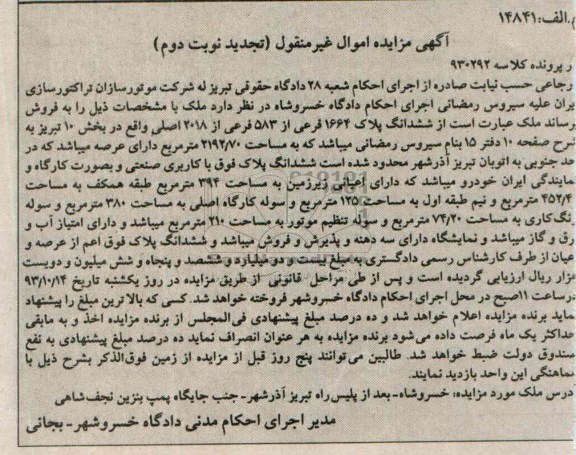 م.الف:۱۴۸۴۱
آگهی مزایده اموال غیرمنقول (تجدید نوبت دوم)
ر پرونده کلاسه ۹۳۰۲۹۲
رجاعی حسب نیابت صادره از اجرای احکام شعبه ۲۸ دادگاه حقوقی تبریز له شرکت موتورسازان تراکتورسازی
یران علیه سیروس رمضانی اجرای احکام دادگاه خسروشاه در نظر دارد ملک با مشخصات ذیل را به فروش
رساند ملک عبارت است از ششدانگ پلاک ۱۶۶۴ فرعی از ۵۸۳ فرعی از ۲۰۱۸ اصلی واقع در بخش ۱۰ تبریز به
شرح صفحه ۱۰ دفتر ۱۵ بنام سیروس رمضانی میباشد که به مساحت ۲۱۹۲/۷۰ مترمربع دارای عرصه میباشد که در
حد جنوبی به اتوبان تبریز آذرشهر محدود شده است ششدانگ پلاک فوق با کاربری صنعتی و بصورت کارگاه و
مایندگی ایران خودرو میباشد که دارای اعیان زیرزمین به مساحت ۳۹۴ مترمربع طبقه همکف به مساحت
۴۵۲/۴ مترمربع و نیم طبقه اول به مساحت ۱۲۵ مترمربع و سوله کارگاه اصلی به مساحت ۳۸۰ مترمربع و سوله
رنگ‌کاری به مساحت ۷۴/۲۰ مترمربع و سوله تنظیم موتور به مساحت ۲۱۰ مترمربع میباشد و دارای امتیاز آب و
رق و گاز میباشد و نمایشگاه دارای سه دهنه و پذیرش و فروش میباشد و ششدانگ پلاک فوق اعم از عرصه و
عیان از طرف کارشناس رسمی دادگستری به مبلغ بیست و دو میلیارد و ششصد و پنجاه و شش میلیون و دویست
هزار ریال ارزیابی گردیده است و پس از طی مراحل قانونی از طریق مزایده در روز یکشنبه تاریخ ۹۳/۱۰/۱۴
درساعت ۱۱صبح در محل اجرای احکام دادگاه خسروشهر فروخته خواهد شد. کسی که بالاترین مبلغ را پیشنهاد
نماید برنده مزایده اعلام خواهد شد و ده درصد مبلغ پیشنهادی فی‌المجلس از برنده مزایده اخذ و به مابقی
حداکثر یک ماه فرصت داده می‌شود برنده مزایده به هر عنوان انصراف نماید ده درصد مبلغ پیشنهادی به نفع
صندوق دولت ضبط خواهد شد. طالبین می‌توانند پنج روز قبل از مزایده از زمین فوق‌الذکر بشرح ذیل با
هماهنگی این واحد بازدید نمایند.
درس ملک مورد مزایده: خسروشاه-بعد از پلیس‌راه تبریز آذرشهر- جنب جایگاه پمپ بنزین نجف‌شاهی
مدیر اجرای احکام مدنی دادگاه خسروشهر-بجانی